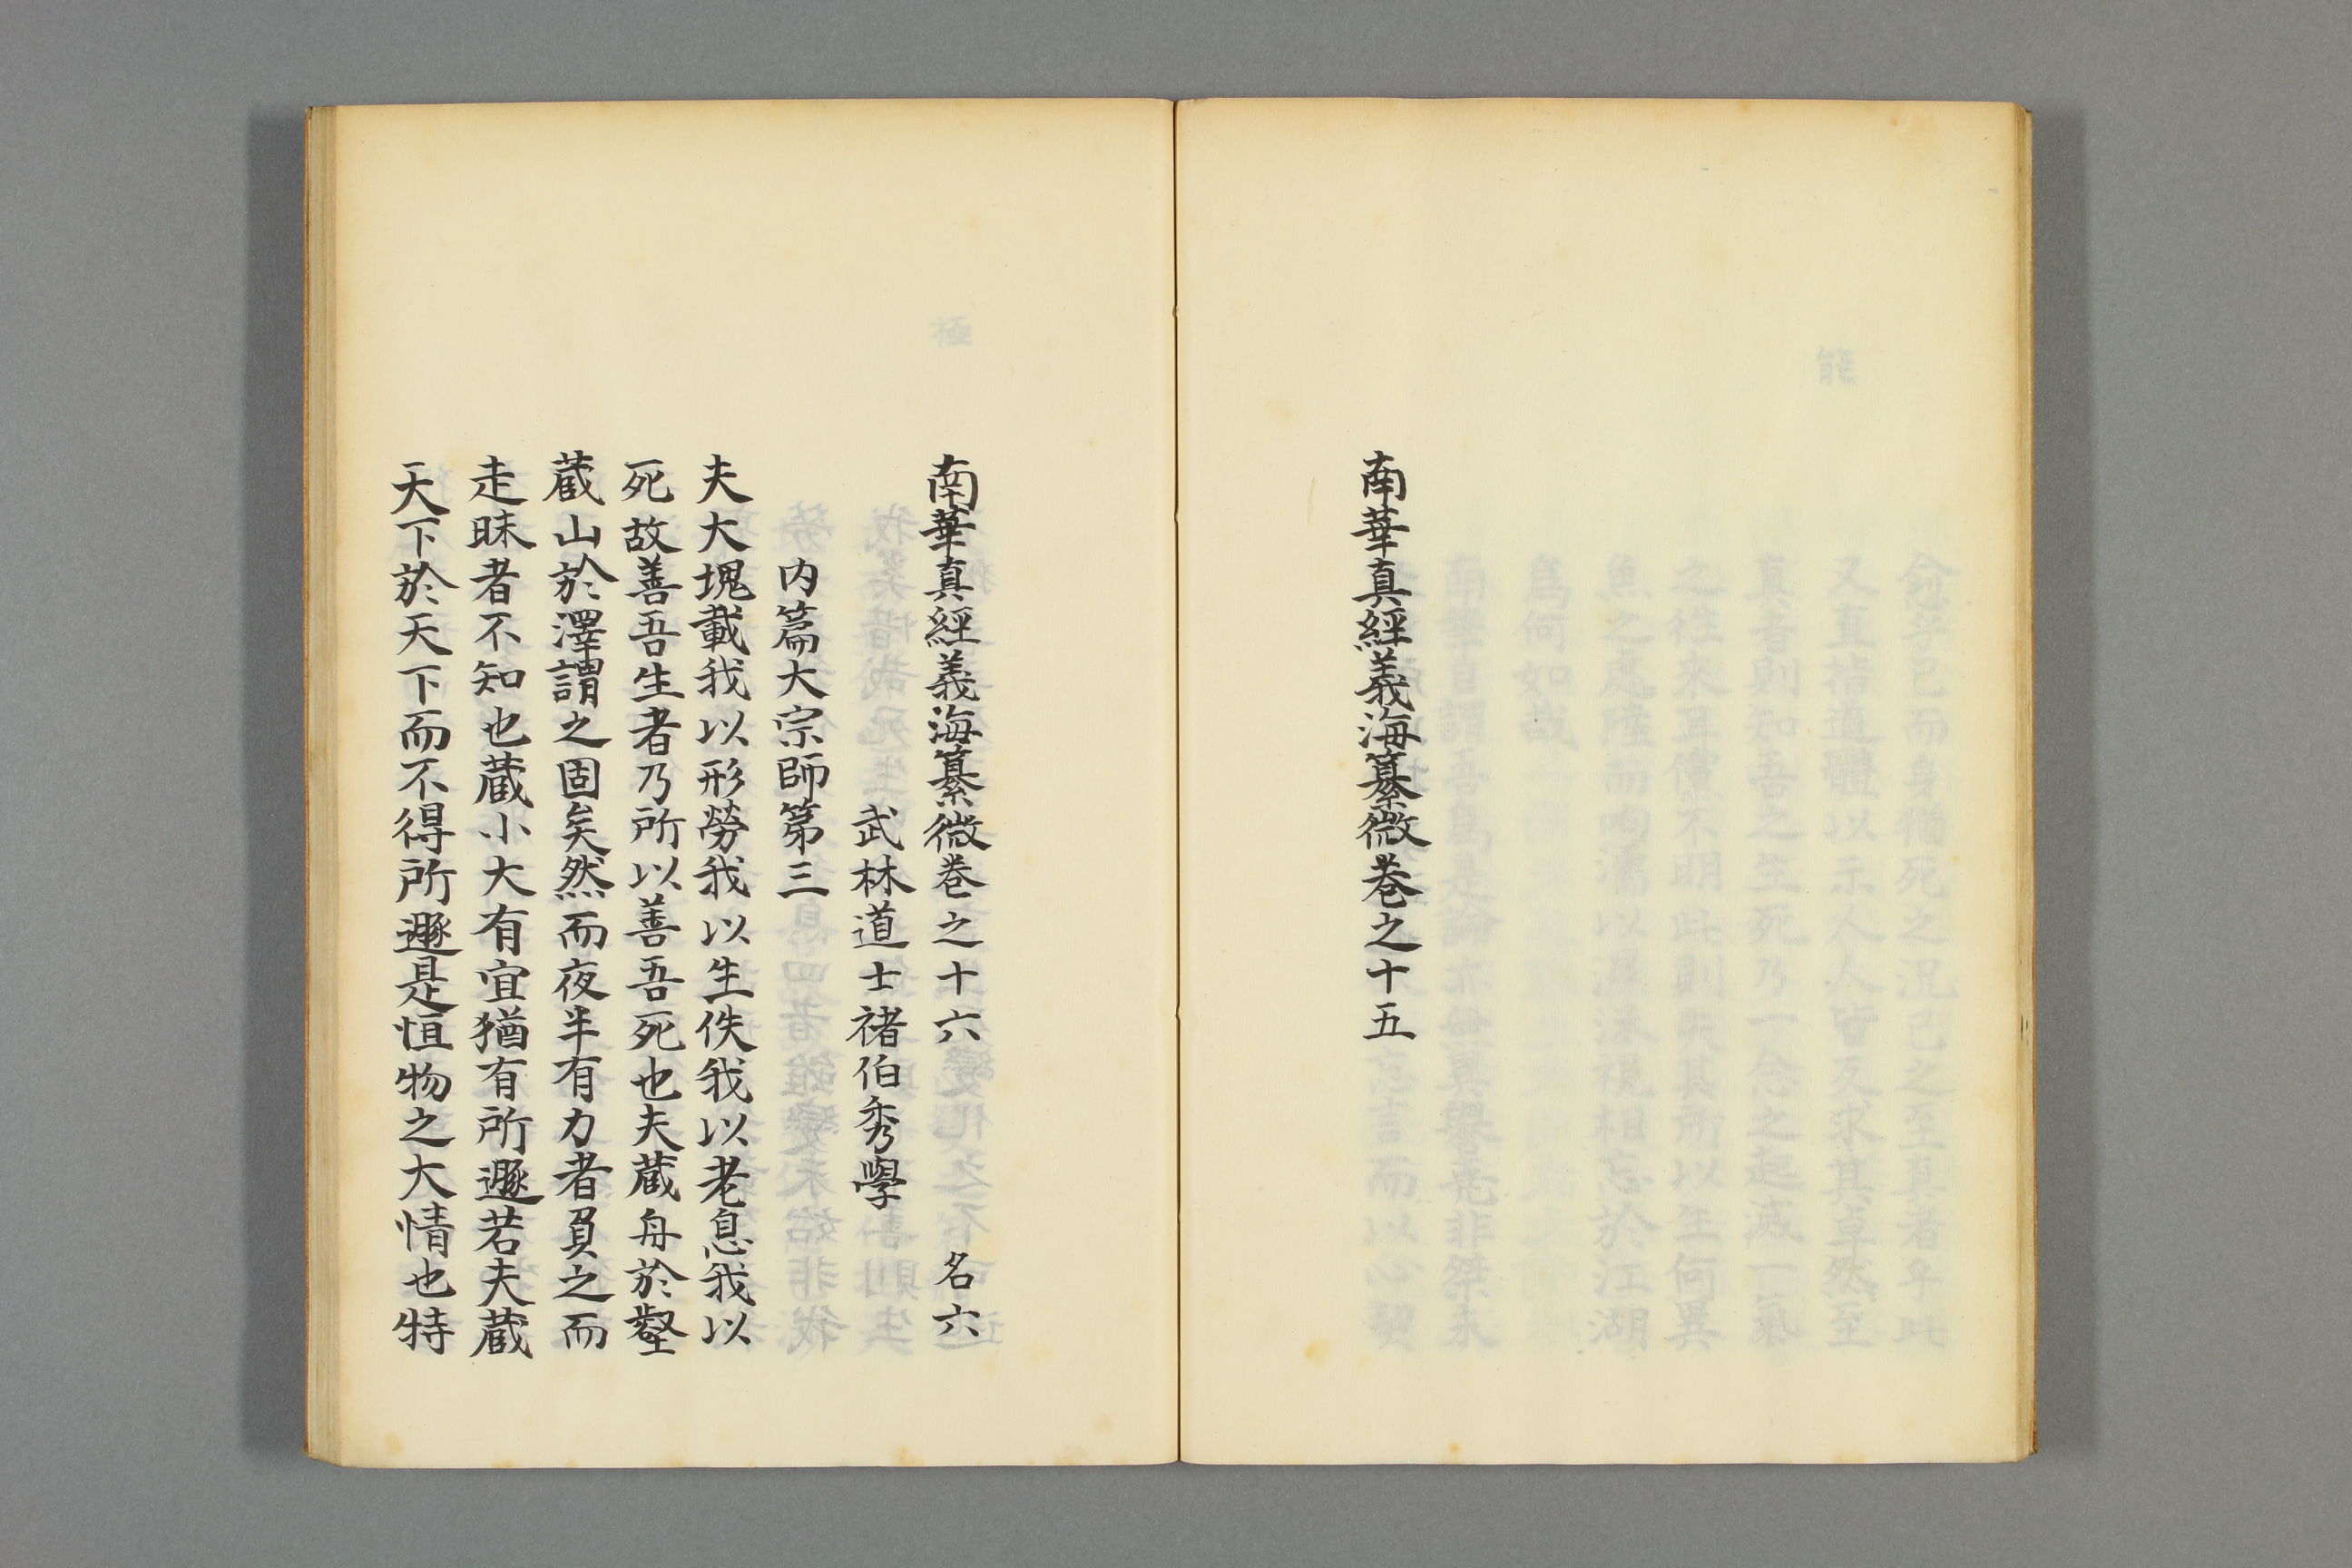 南華真經義海纂微巻之十五
南華真經義海纂微巻之十六　名六
武林道士禇伯秀學
内篇大宗師第三
夫大塊載我以形勞我以生佚我以老息我以
死故善吾生者乃所以善吾死也夫蔵舟於壑
蔵山於澤謂之固矣然而夜半有力者負之而
走昧者不知也蔵小大有宜猶有所遯若夫蔵
天下於天下而不得所遯是恒物之大情也特